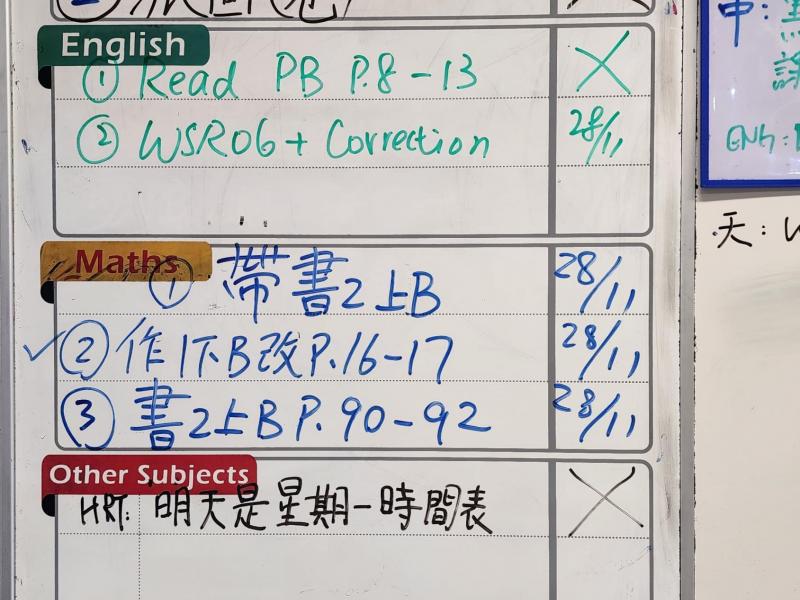 English
① Read PB P.8-13 X
② WSR06 + Correction 28/11
Maths
① 帶書2上B 28/11
✓ ② 作1下B改P.16-17 28/11
③ 書2上B P.90-92 28/11
Other Subjects
HRT: 明天是星期一時間表 X
中:
ENG:
天: